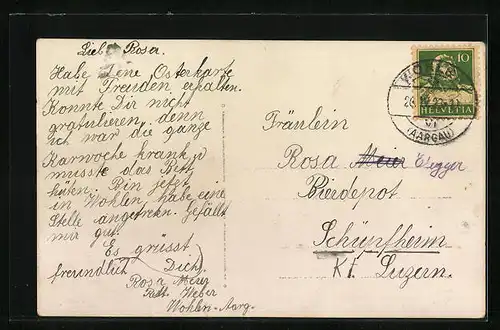 Liebe Rosa.
Habe Deine Osterkarte
mit Freuden erhalten.
Konnte Dir nicht
gratulieren, denn
ich war die ganze
Karwoche krank u
musste das Bett
hüten. Bin jetzt
in Wohlen, habe eine
Stelle angetreten. Gefällt
mir gut.
Es grüsst
freundlich Dich
Rosa Meier
Weber
Wohlen-Aarg.
10
HELVETIA
(AARGAU)
Fräulein
Rosa Meier
Bierdepot
Schüpfheim
Kt. Luzern.